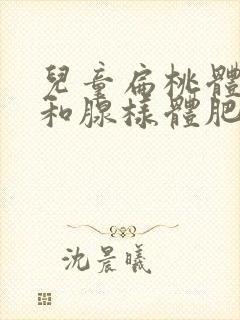 兒童扁桃體
和腺樣體肥
沈晨曦